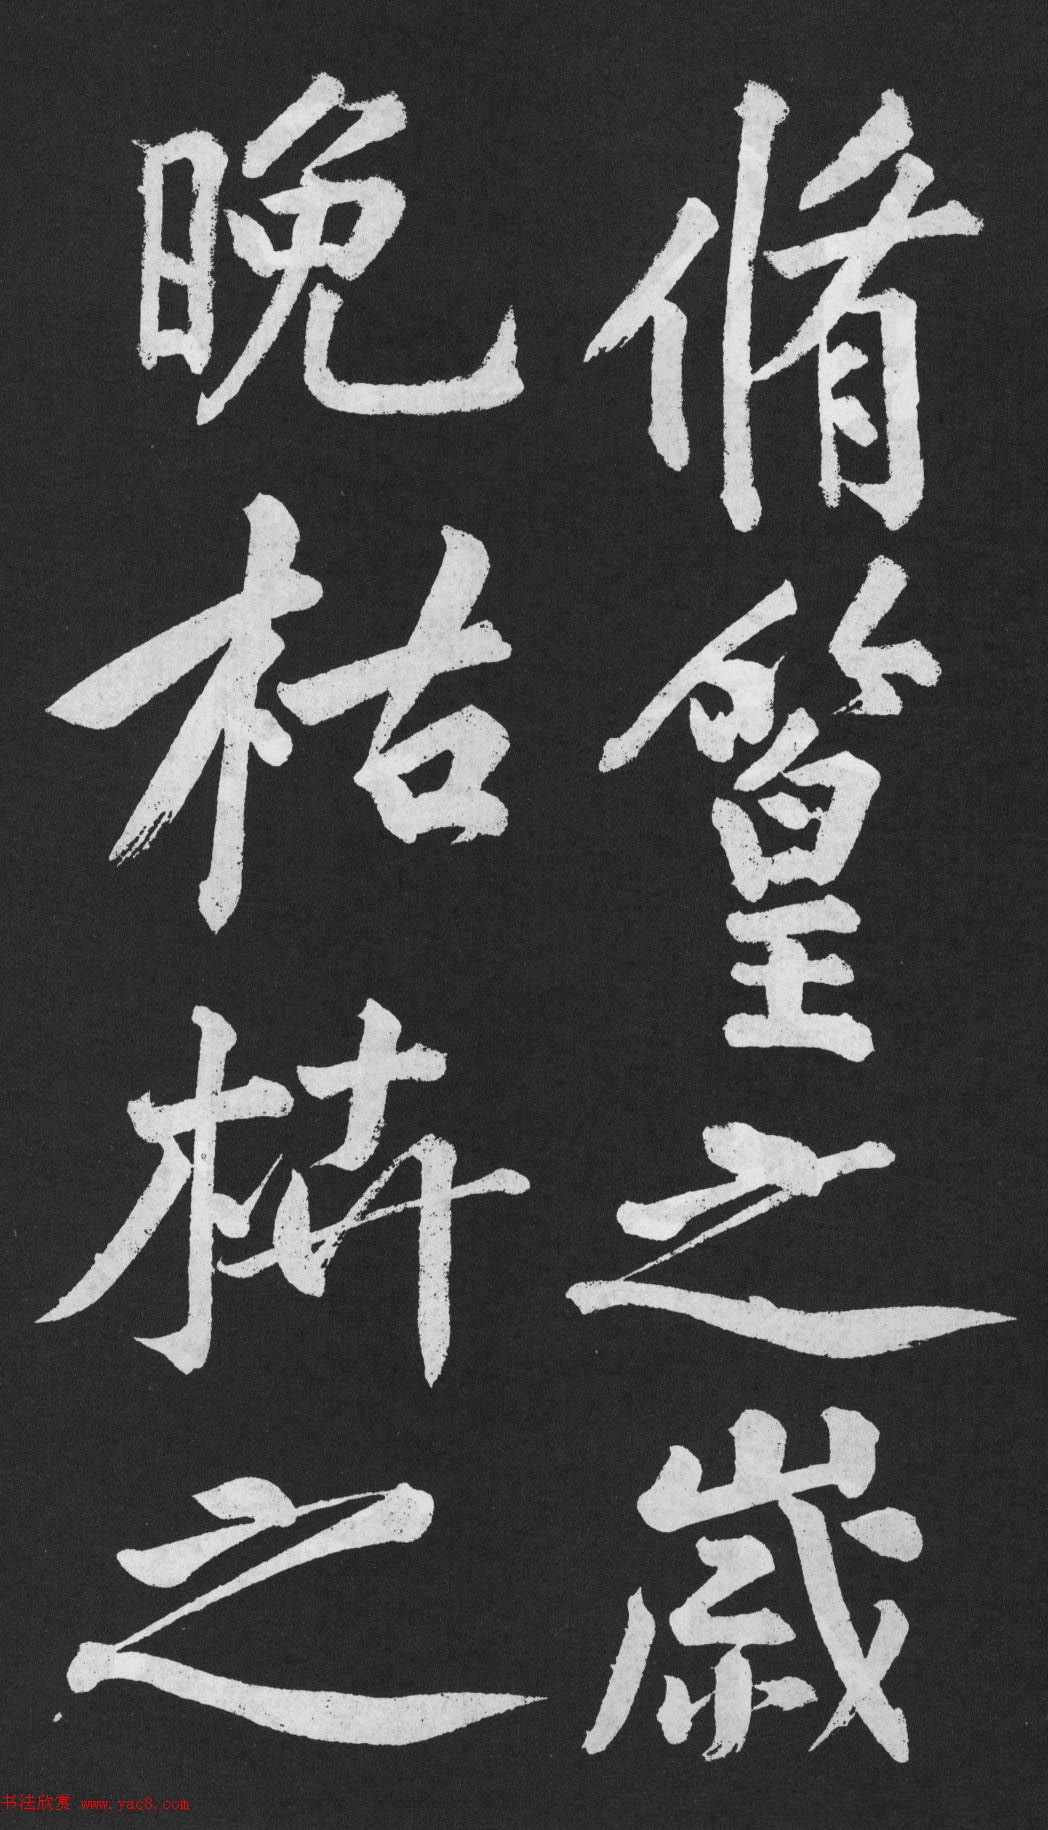 脩篁之歲
晚枯枿之
书法欣赏 www.yac8.com